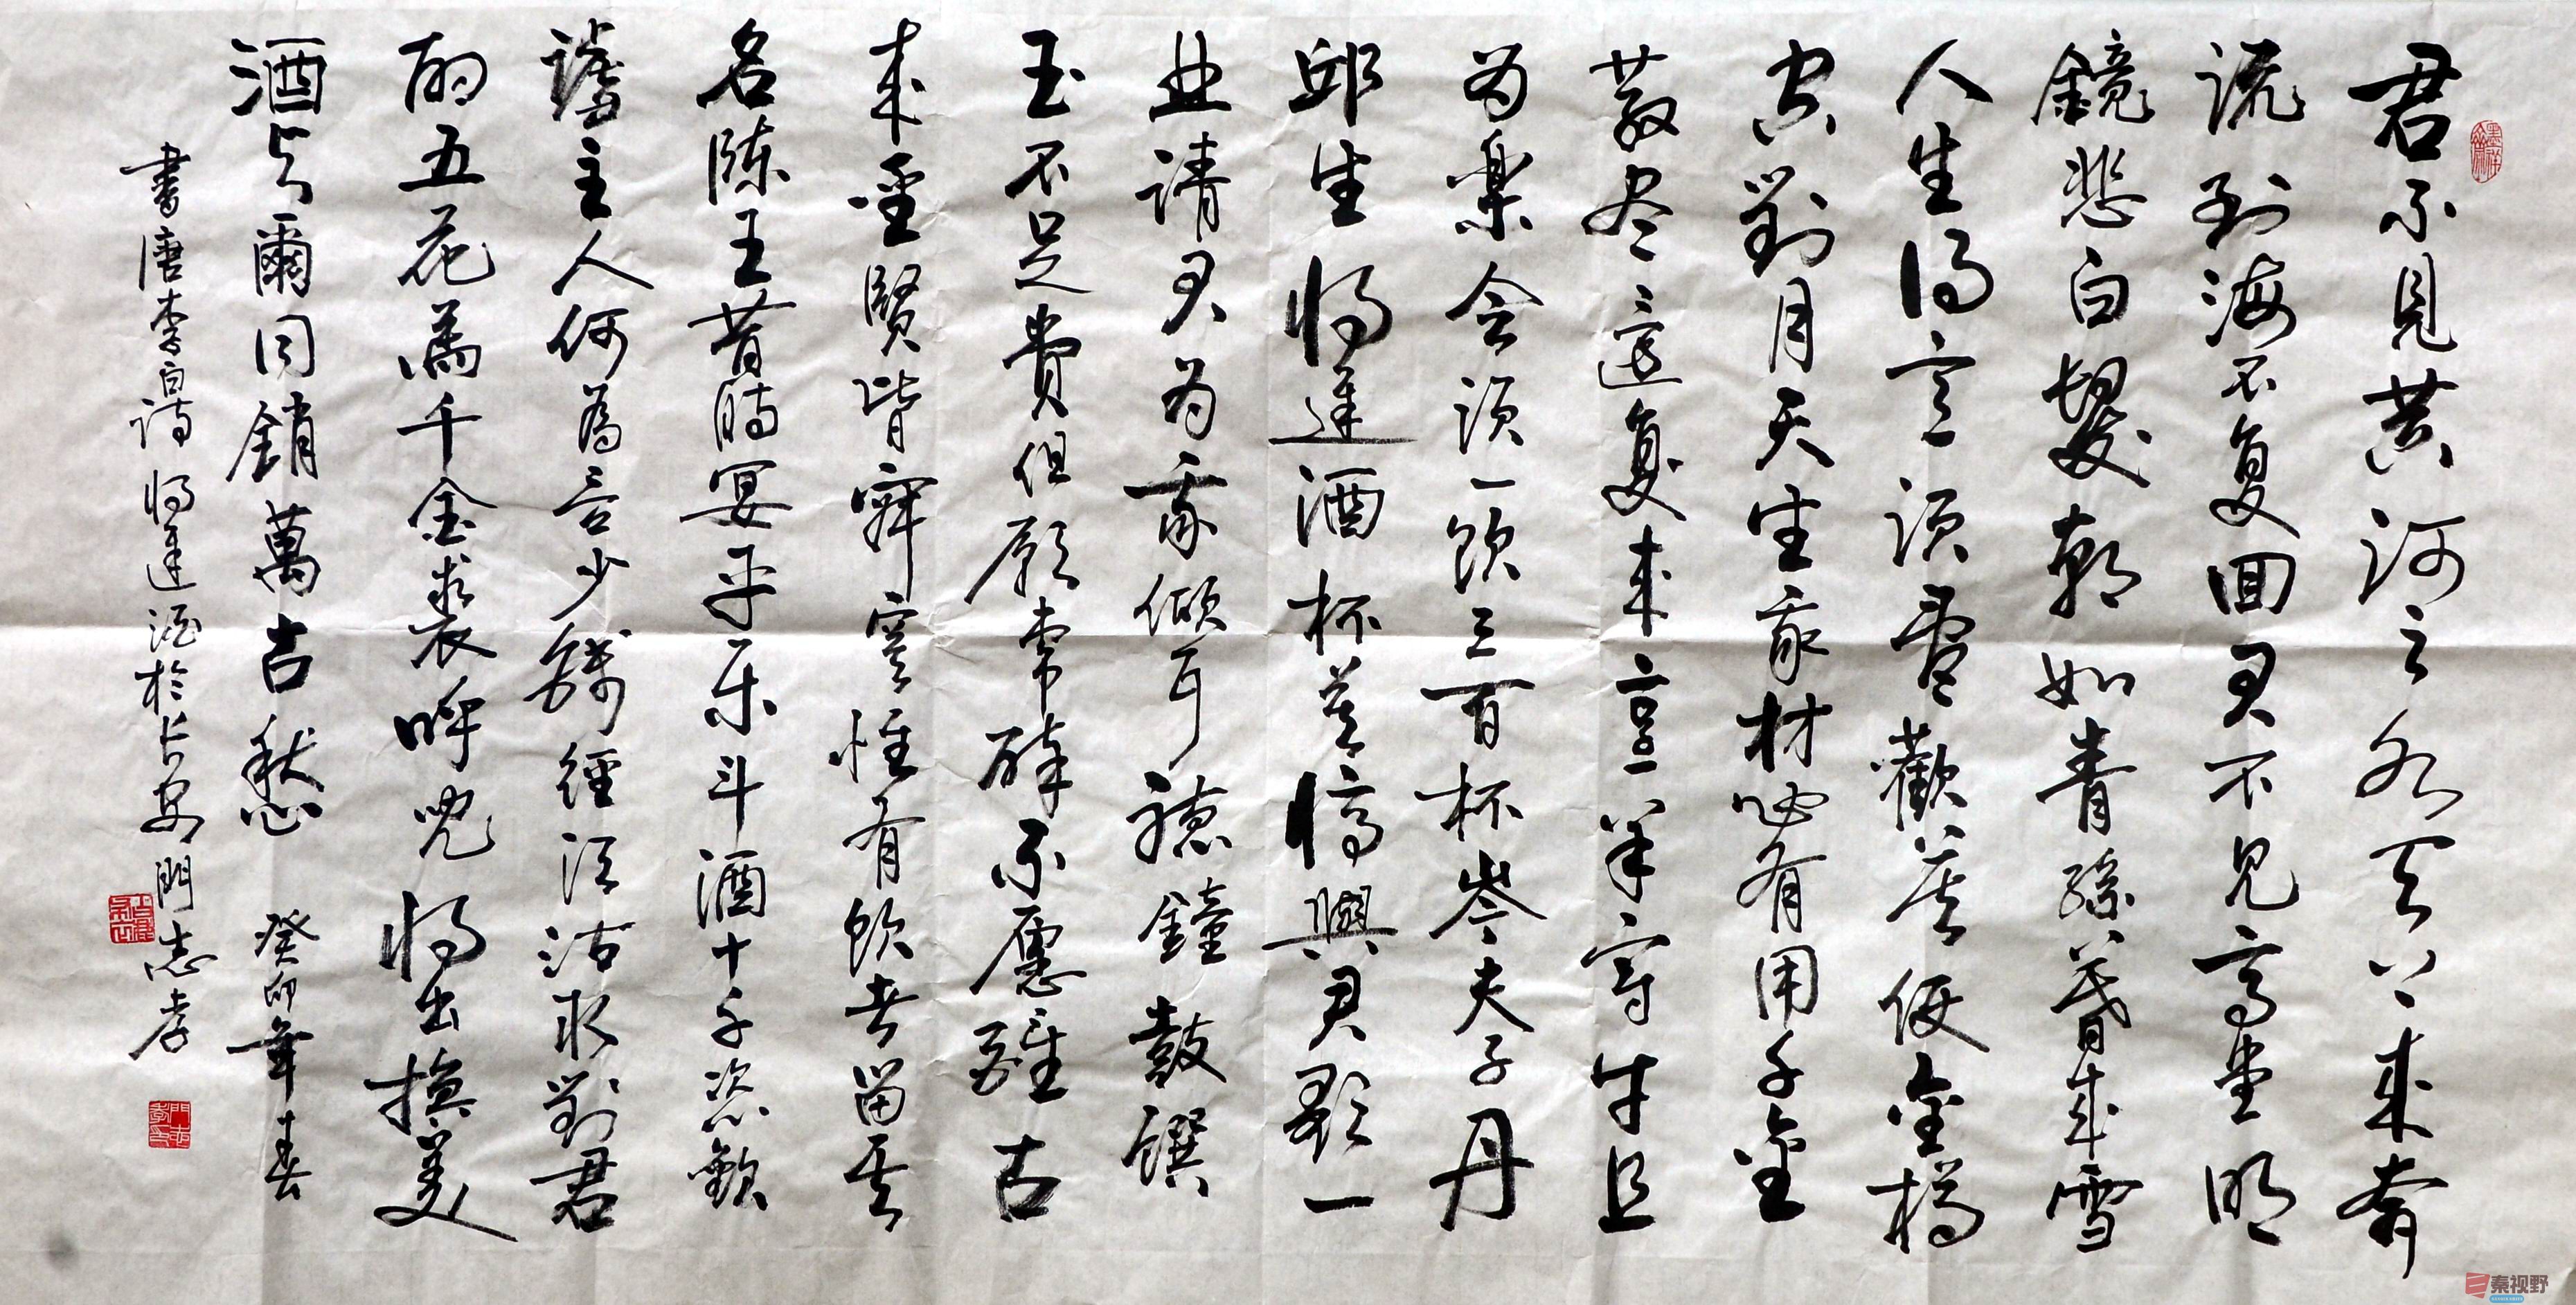 君不見黄河之水天上来奔
流到海不复回君不見高堂明
鏡悲白髮朝如青絲暮成雪
人生得意須盡歡莫使金樽
空對月天生我材必有用千金
散尽還复来烹羊宰牛且
为樂会須一飲三百杯岑夫子丹
邱生将進酒杯莫停與君歌一
曲請君为我傾耳聴鐘鼓饌
玉不足貴但願常醉不愿醒古
来聖賢皆寂寞惟有飲者留其
名陈王昔時宴平乐斗酒十千恣歡
謔主人何為言少錢徑須沽取對君
酌五花馬千金裘呼児将出換美
酒与爾同銷萬古愁 癸卯年春
書唐李白詩将進酒於长安門志孝
秦视野